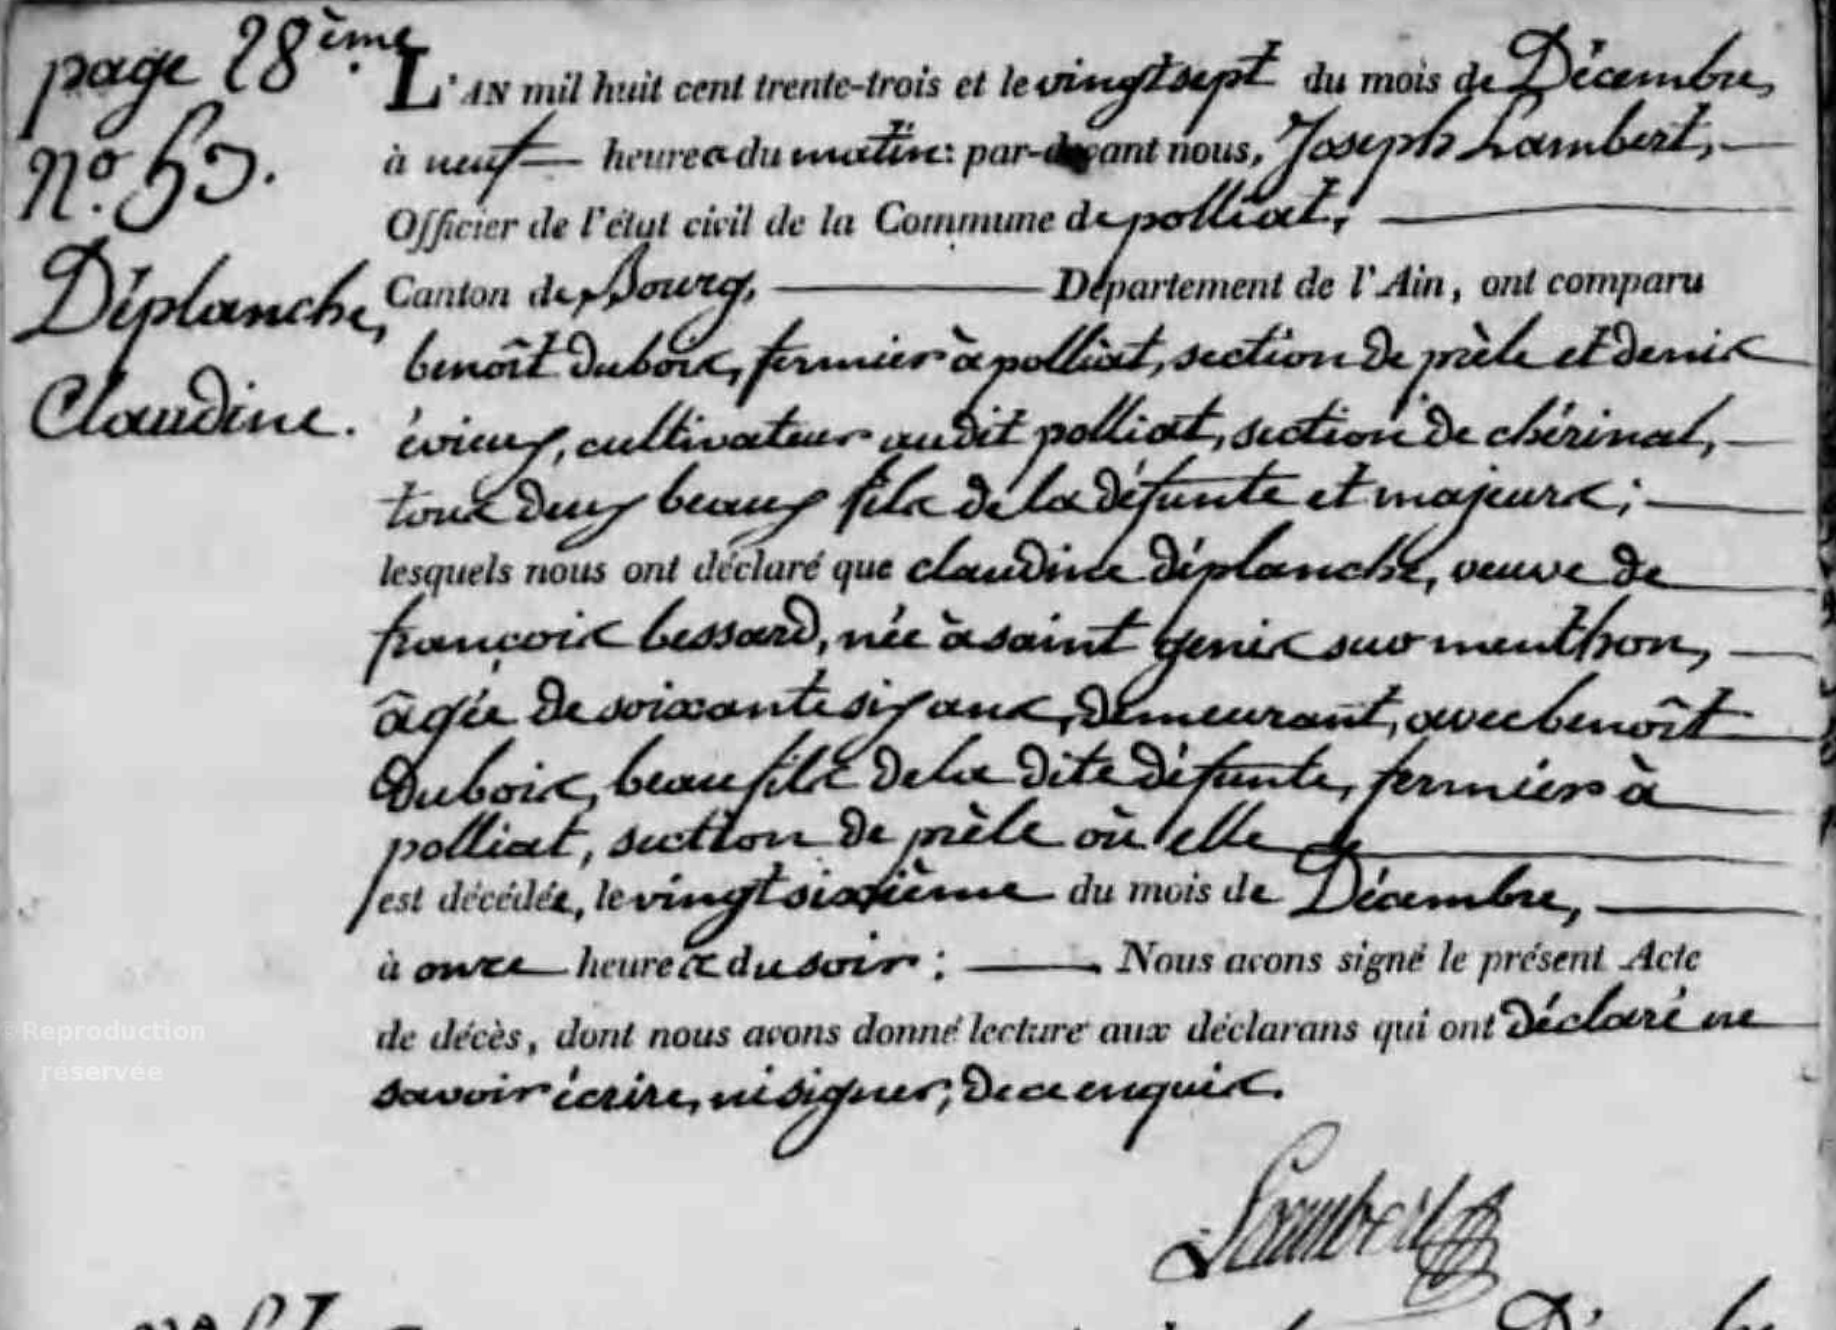 page 28ème
n.º 53.
Déplanche,
Claudine.
L'AN mil huit cent trente-trois et le vingt sept du mois de Décembre,
à neuf heures du matin : par-devant nous, Joseph Lambert,
Officier de l'état civil de la Commune de polliat,
Canton de Bourg, Département de l'Ain, ont comparu
benoît dubois, fermier à polliat, section de prèle et denis
évieux, cultivateur audit polliat, section de chérinal,
tous deux beaux fils de la défunte et majeurs ;
lesquels nous ont déclaré que claudine déplanche, veuve de
françois bessard, née à saint genis sur menthon,
âgée de soixante six ans, demeurant, avec benoît
Dubois, beau fils de la dite défunte, fermier à
polliat, section de prèle où elle
est décédée, le vingt sixième du mois de Décembre,
à onze heures du soir : Nous avons signé le présent Acte
de décès, dont nous avons donné lecture aux déclarans qui ont déclaré ne
savoir écrire, ni signer, de ce enquis.
Lambert
Reproduction
réservée